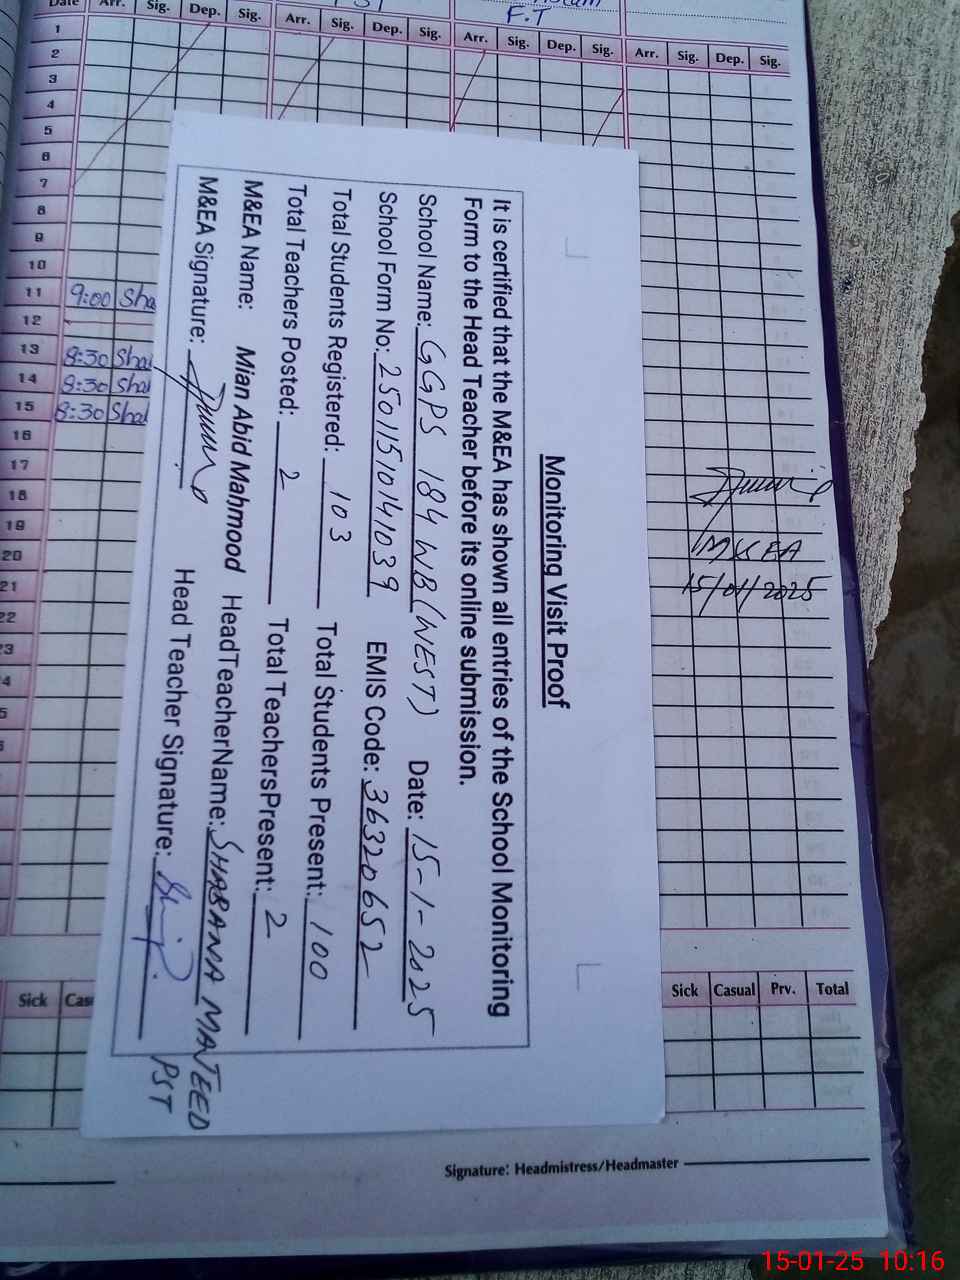 F.T
Date Arr. Sig. Dep. Sig. Arr. Sig. Dep. Sig. Arr. Sig. Dep. Sig. Arr. Sig. Dep. Sig.
1
2
3
4
5
6
7
8
9
10
11 9:00 Sha
12
13 8:30 Sha
14 8:30 Sha
15 8:30 Sha
16
17
18
19
20
21
22
23
4
5
Monitoring Visit Proof
It is certified that the M&EA has shown all entries of the School Monitoring
Form to the Head Teacher before its online submission.
School Name: GGPS 184 WB (WEST) Date: 15-1-2025
School Form No: 25011510141039 EMIS Code: 36320652
Total Students Registered: 103 Total Students Present: 100
Total Teachers Posted: 2 Total TeachersPresent: 2
M&EA Name: Mian Abid Mahmood HeadTeacherName: SHABANA MAJEED
M&EA Signature: Head Teacher Signature: PST
M&EA
15/01/2025
Sick Cas Sick Casual Prv. Total
Signature: Headmistress/Headmaster
15-01-25 10:16